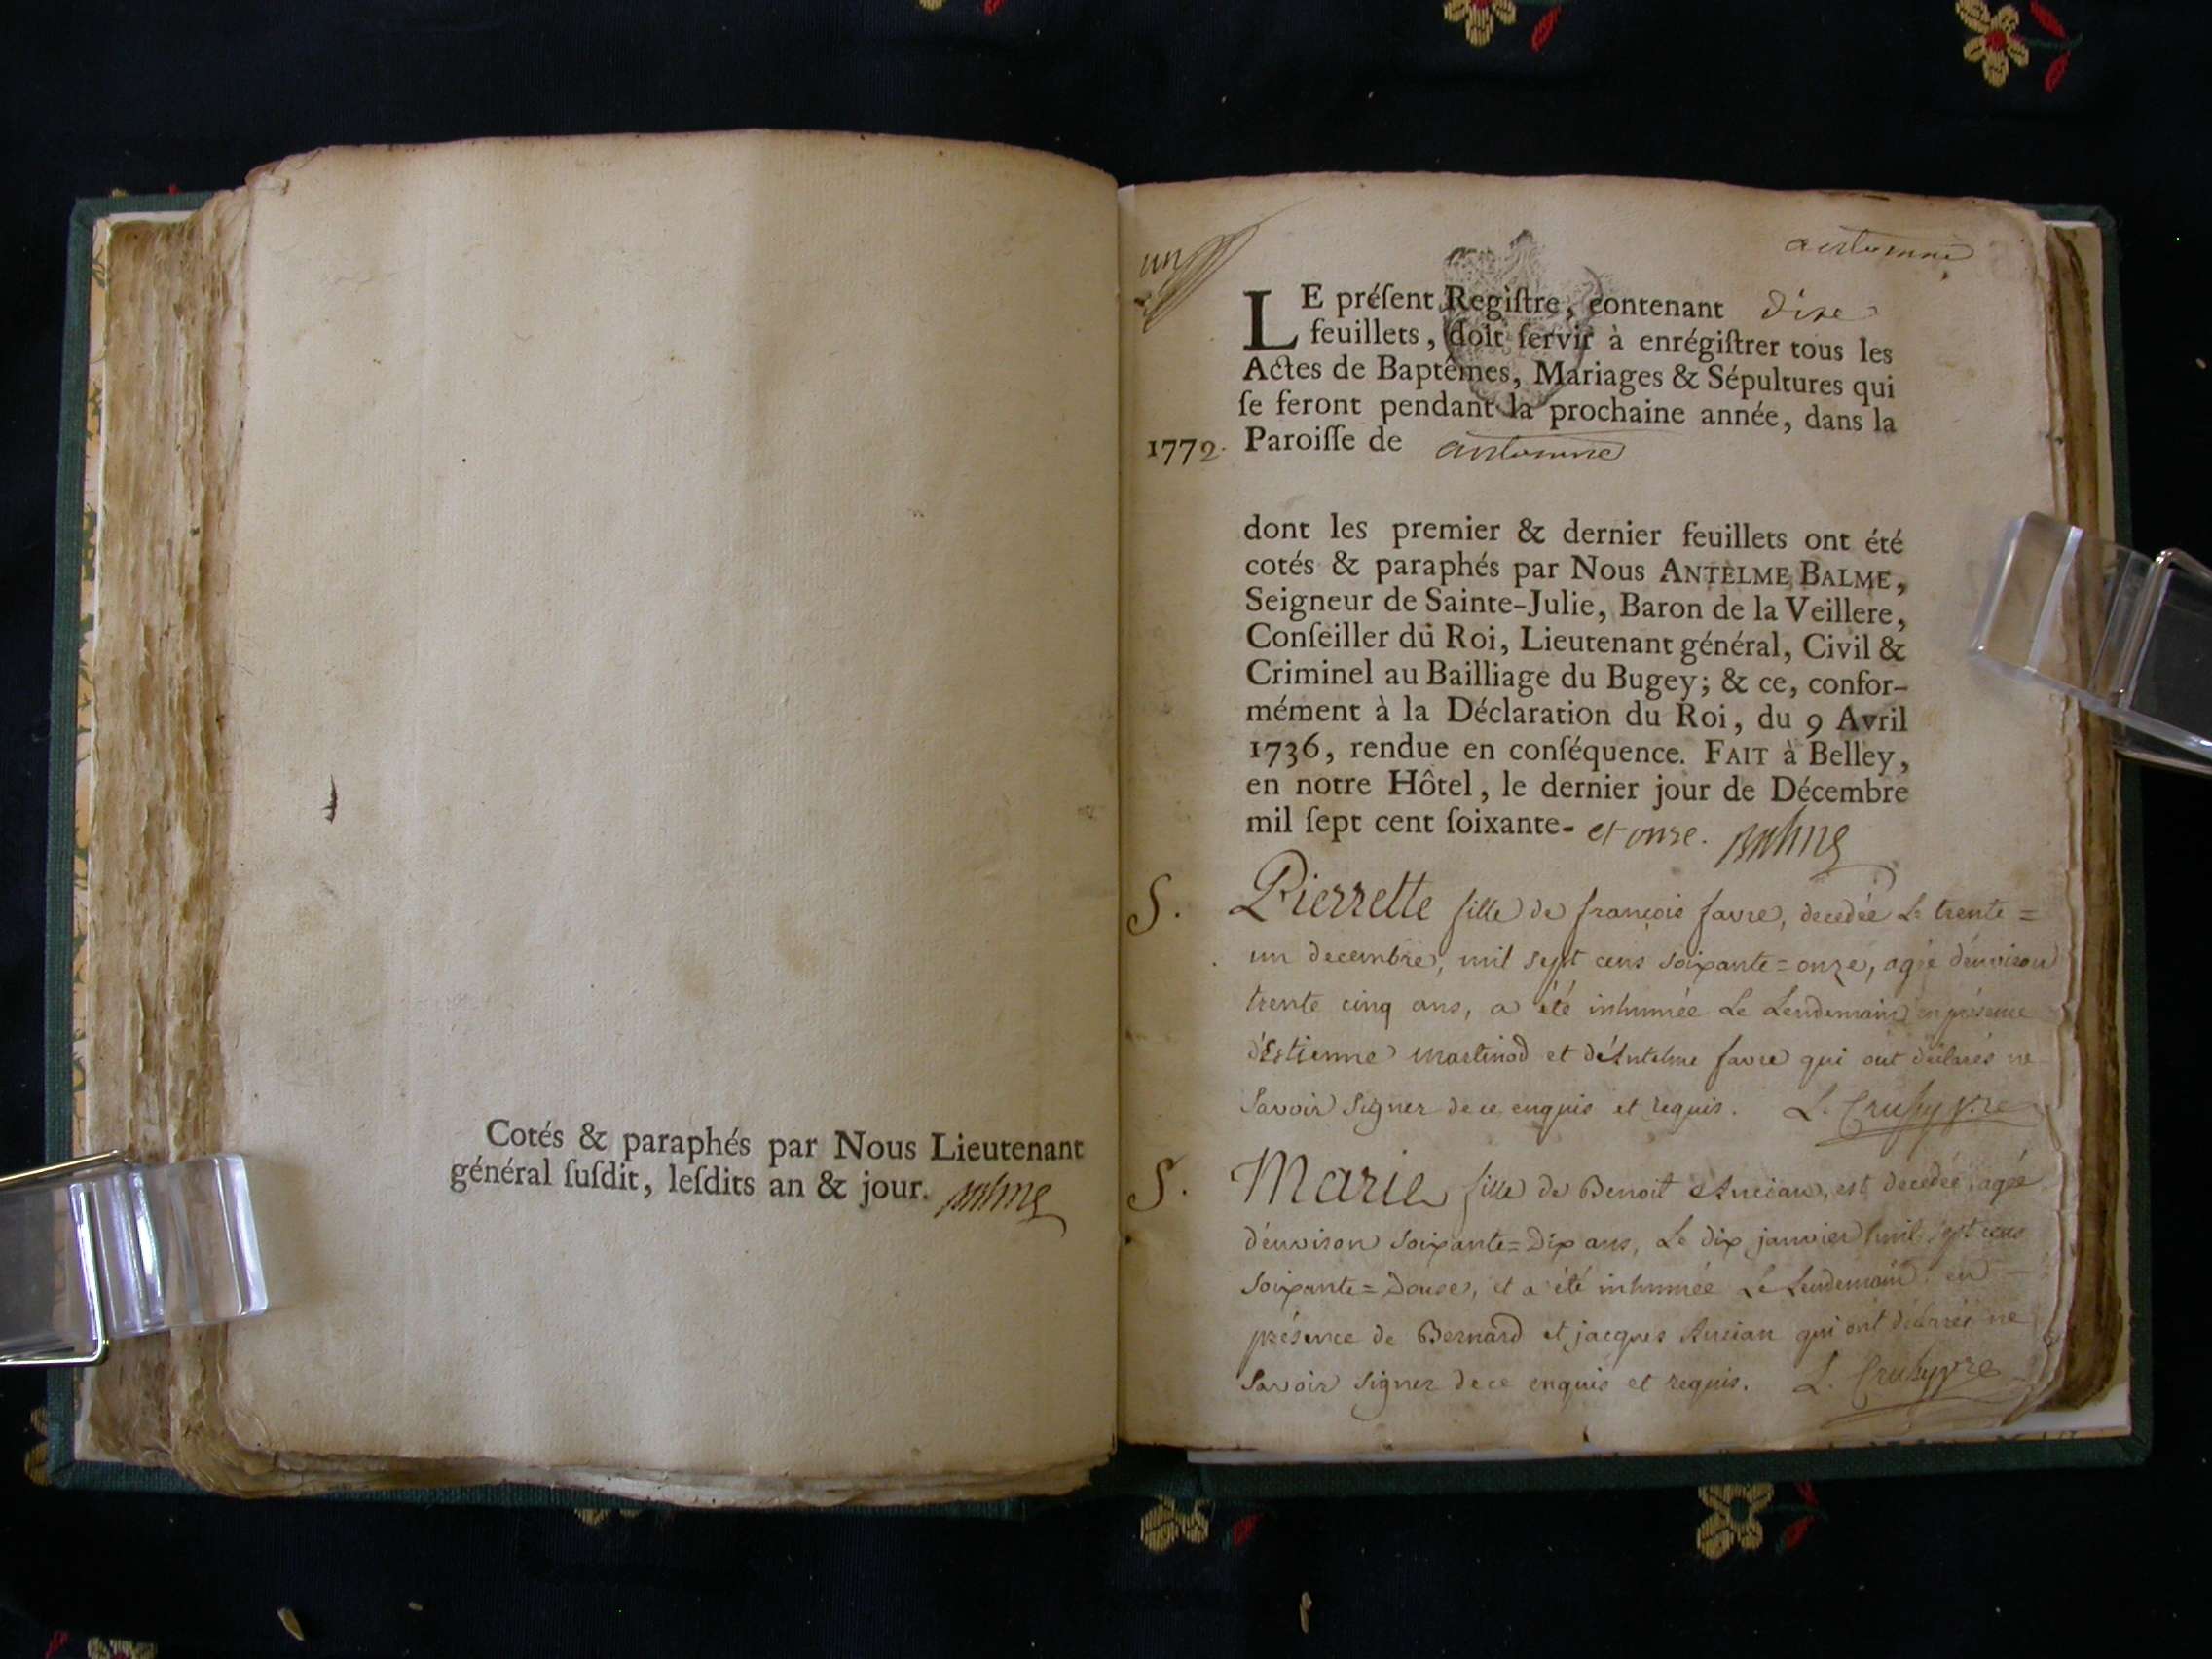 Cotés & paraphés par Nous Lieutenant
général ſuſdit, leſdits an & jour. Balme
un
LE préſent Regiſtre, contenant dixe
feuillets, doit ſervir à enrégiſtrer tous les
Actes de Baptêmes, Mariages & Sépultures qui
ſe feront pendant la prochaine année, dans la
1772. Paroiſſe de
dont les premier & dernier feuillets ont été
cotés & paraphés par Nous ANTELME BALME,
Seigneur de Sainte-Julie, Baron de la Veillere,
Conſeiller du Roi, Lieutenant général, Civil &
Criminel au Bailliage du Bugey; & ce, confor-
mément à la Déclaration du Roi, du 9 Avril
1736, rendue en conſéquence. FAIT à Belley,
en notre Hôtel, le dernier jour de Décembre
mil ſept cent ſoixante- et onze. Balme
S. Pierrette fille de françois favre, decedée Le trente=
un decembre, mil sept cens soixante=onze, agée d'environ
trente cinq ans, a été inhumée Le Lendemain en présence
d'Estienne martinod et d'Antelme favre qui ont déclarés ne
savoir signer de ce enquis et requis.
S. Marie fille de Benoit Ancian, est decedée, agée
d'environ soixante=Dix ans, Le dix janvier mil sept cens
soixante=Douse, et a été inhumée Le Lendemain en
présence de Bernard et jacques Ancian qui ont déclarés ne
savoir signer de ce enquis et requis.